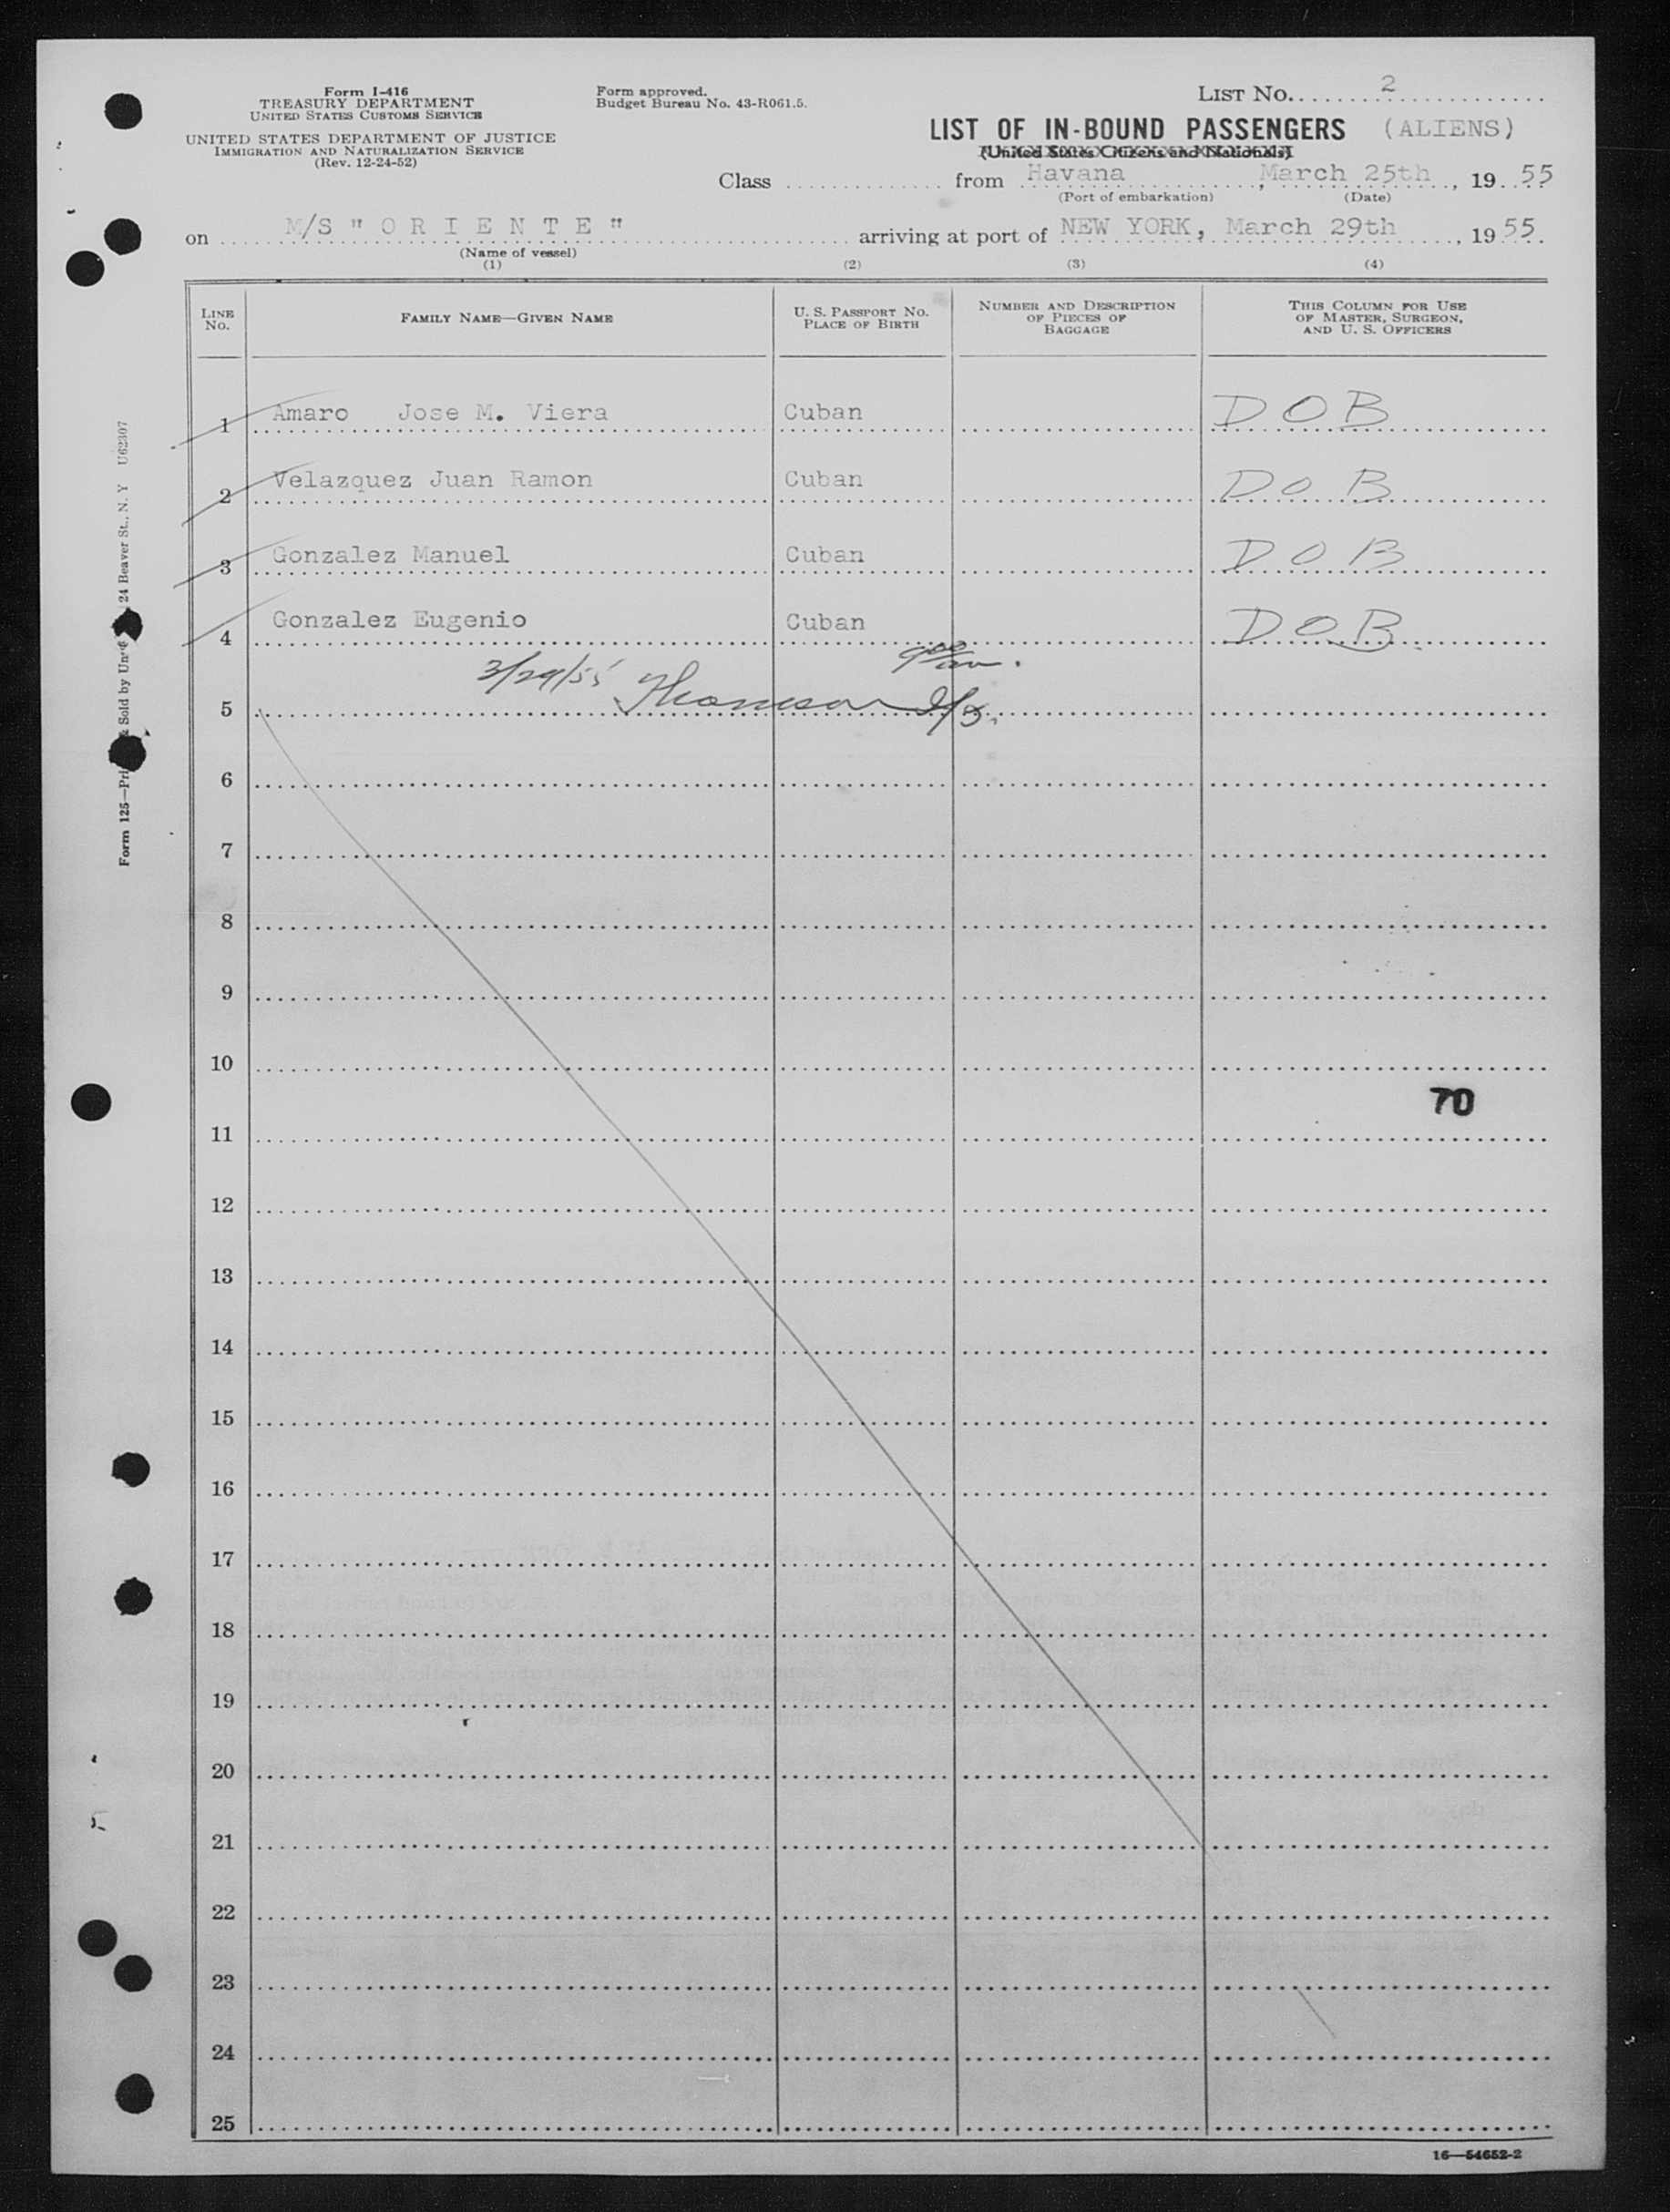 Form I-416
TREASURY DEPARTMENT
UNITED STATES CUSTOMS SERVICE
UNITED STATES DEPARTMENT OF JUSTICE
IMMIGRATION AND NATURALIZATION SERVICE
(Rev. 12-24-52)
Form approved.
Budget Bureau No. 43-R061.5.
LIST NO. 2
LIST OF IN-BOUND PASSENGERS (ALIENS)
(United States Citizens and Nationals)
Class from Havana, March 25th, 19 55
(Port of embarkation) (Date)
on M/S "ORIENTE" arriving at port of NEW YORK, March 29th, 19 55.
(Name of vessel)
(1) (2) (3) (4)
LINE NO. FAMILY NAME—GIVEN NAME U. S. PASSPORT NO. PLACE OF BIRTH NUMBER AND DESCRIPTION OF PIECES OF BAGGAGE THIS COLUMN FOR USE OF MASTER, SURGEON, AND U. S. OFFICERS
1 Amaro Jose M. Viera Cuban DOB
2 Velazquez Juan Ramon Cuban DOB
3 Gonzalez Manuel Cuban DOB
4 Gonzalez Eugenio Cuban DOB
3/29/55 900 am.
5
6
7
8
9
10
70
11
12
13
14
15
16
17
18
19
20
21
22
23
24
25
16—54652-2
Form 125—Pri & Sold by Un 24 Beaver St., N. Y U62307